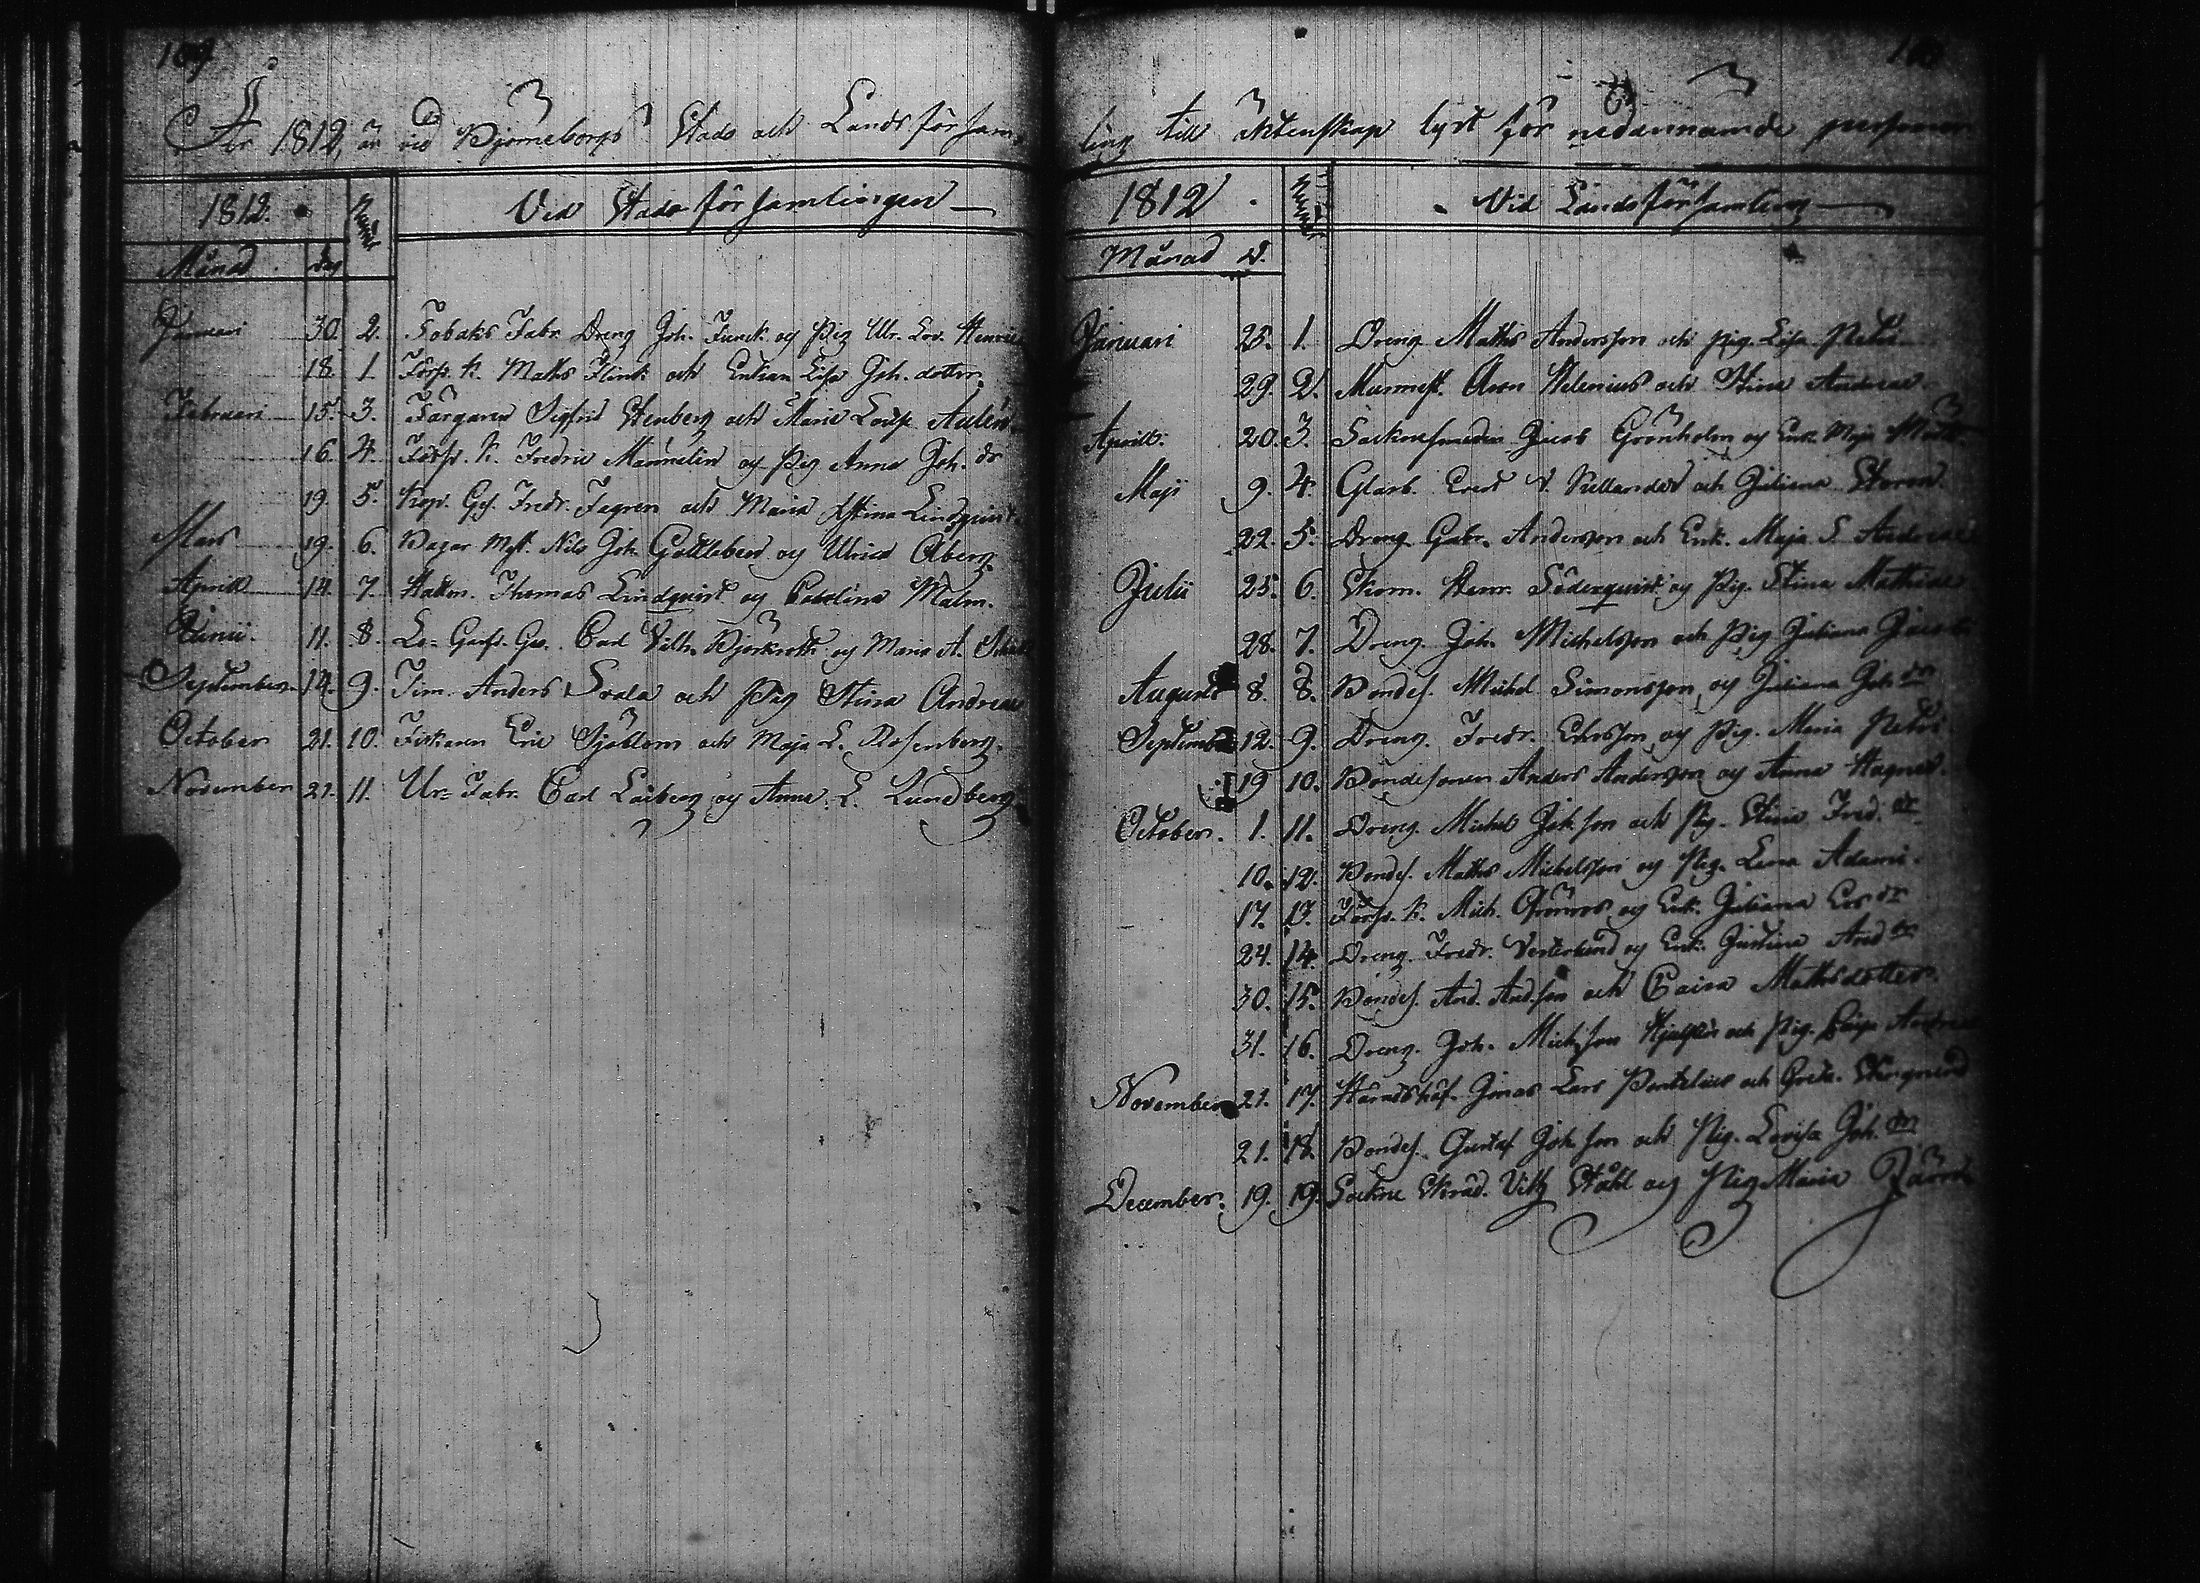 169
År 1812, är vid Björneborgs Stads och Landsförsam-
1812. Vid Stads församlingen
Månad dag
Januari 30. 2. Tobaks Fabr. Dreng Joh. Funck og Pig Ulr. Lov. Henrics
18. 1. Förs. K. Maths Flink och Enkan Lisa Joh. dotter
Februari 15. 3. Färgaren Sigfrid Stenberg och Maria Lovisa
16. 4. Förs. K. Fredric Mannelin og Pig Anna Joh. dr
19. 5. Kop. Ges. Fredr. Fegren och Maria Stina Lindqvist
Mars 19. 6. Bagar Mest. Nils Joh. Gottleben og Ulrica Åberg
Aprill 14. 7. Hattm. Thomas Lindqvist og Carolina Malm.
Junii 11. 8. Carl Vilh. Björkroth og Maria A.
September 14. 9. Tim. Anders Svala och Pig Stina Andreae
October 21. 10. Fiskaren Eric Sjöblom och Maja L. Rosenberg.
November 21. 11. Ur- Fabr. Carl og Anna L. Lundberg
ling till äktenskap lyst för nedannämde personer
1812 Vid Landsförsamling
Månad d.
Januari 25. 1. Dreng Maths Andersson och Pig. Lisa Petri
29. 2. Aron Helenius och Stina Andreae
Aprill. 20. 3. Socknesmeden Jacob Grönholm og Enk. Maja
Maji 9. 4. Glasb. och Juliana Storm
22. 5. Dreng Gabr. Andersson och Enk. Maja S. Andreae
Julii 25. 6. Skom. Henr. Söderqvist og Pig. Stina Mathiae
28. 7. Dreng Joh. Michelsson och Pig Juliana Jacobi
Augusti 8. 8. Bondes. Michel Simonsson og Juliana Joh. dr
September 12. 9. Dreng. Fredr. Ericsson og Pig. Maria Petri
19 10. Bondesonen Anders Andersson og Anna
October. 1. 11. Dreng Michel Joh. son och Pig. Stina Fred. dr
10. 12. Bondes. Maths Michelsson og Pig. Lena Adami.
17. 13. Förs. K. Mich. Grönroos og Enk. Juliana
24. 14. Dreng Fredr. Vesterlund og Enk. Justina And. dr
30. 15. Bondes. And. And. son och Caisa Mathsdotter
31. 16. Dreng. Joh. Mich. son och Pig. Andreae
November 21. 17. Häradshöf. Jonas Lars och Greta
21. 18. Bondes. Gustaf Joh. son och Pig. Lovisa Joh. dr
December. 19. 19. Sockne Skräd. Vilh. Ståhl och Pig Maria